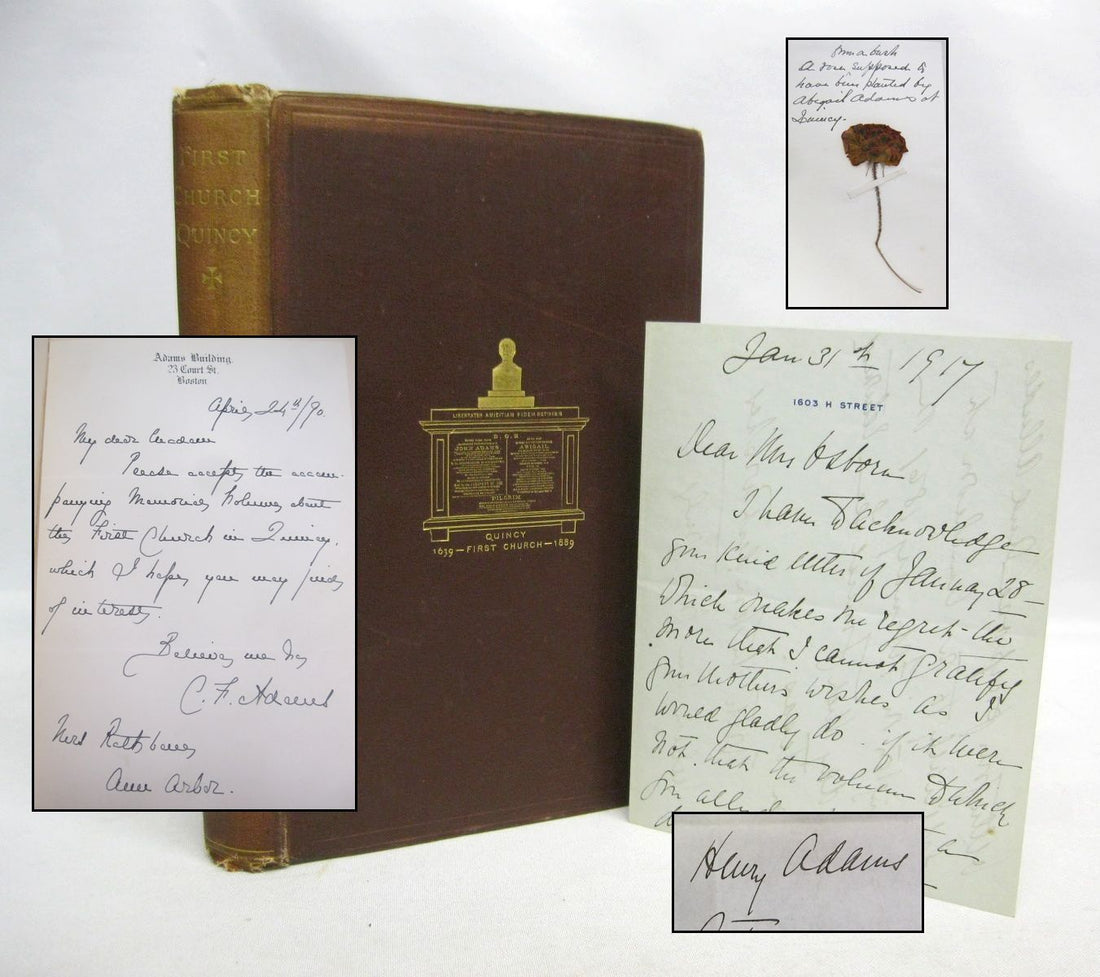 FIRST
CHURCH
QUINCY
LIBERTATEM AMICITIAM FIDEM RETINEBIS
D. O. M.
JOHN ADAMS
ABIGAIL
PILGRIM
QUINCY
1639 — FIRST CHURCH — 1889
Adams Building.
23 Court St.
Boston
April 24th/90.
My dear Madam
Please accept the accom-
panying Memorial Volume about
the First Church in Quincy,
which I hope you may find
of interest.
Believe me &c
C. F. Adams
Mrs
Ann Arbor.
from a bush
a rose supposed to
have been planted by
Abigail Adams at
Quincy.
Jan 31st 1917
1603 H STREET
Dear Mrs Osborn
I have to acknowledge
your kind letter of January 28
which makes me regret the
more that I cannot gratify
your mother's wishes as I
would gladly do if it were
not that the volume to which
you
a
Henry Adams